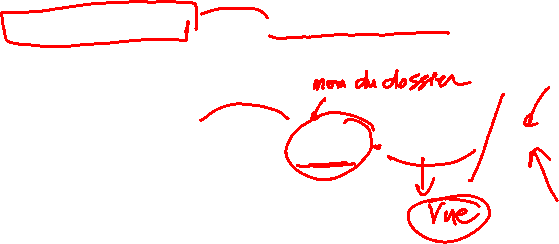 nom du dossier
Vue